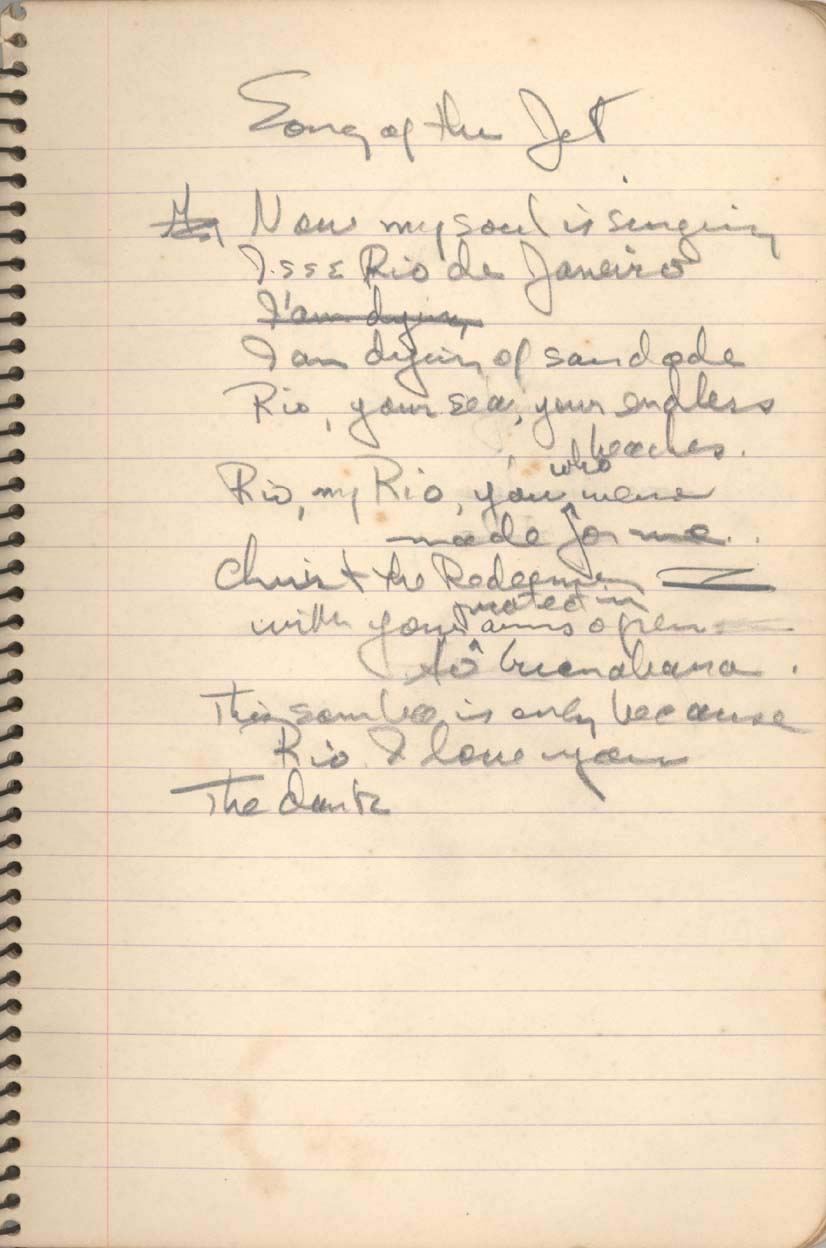 Song of the Jet
Now my soul is singing
I see Rio de Janeiro
I am dying
I am dying of saudade
Rio, your sea, your endless
beaches.
Rio, my Rio, you who were
made for me.
Christ the Redeemer
with your arms open
protectin
Guanabara.
This samba is only because
Rio I love you
The